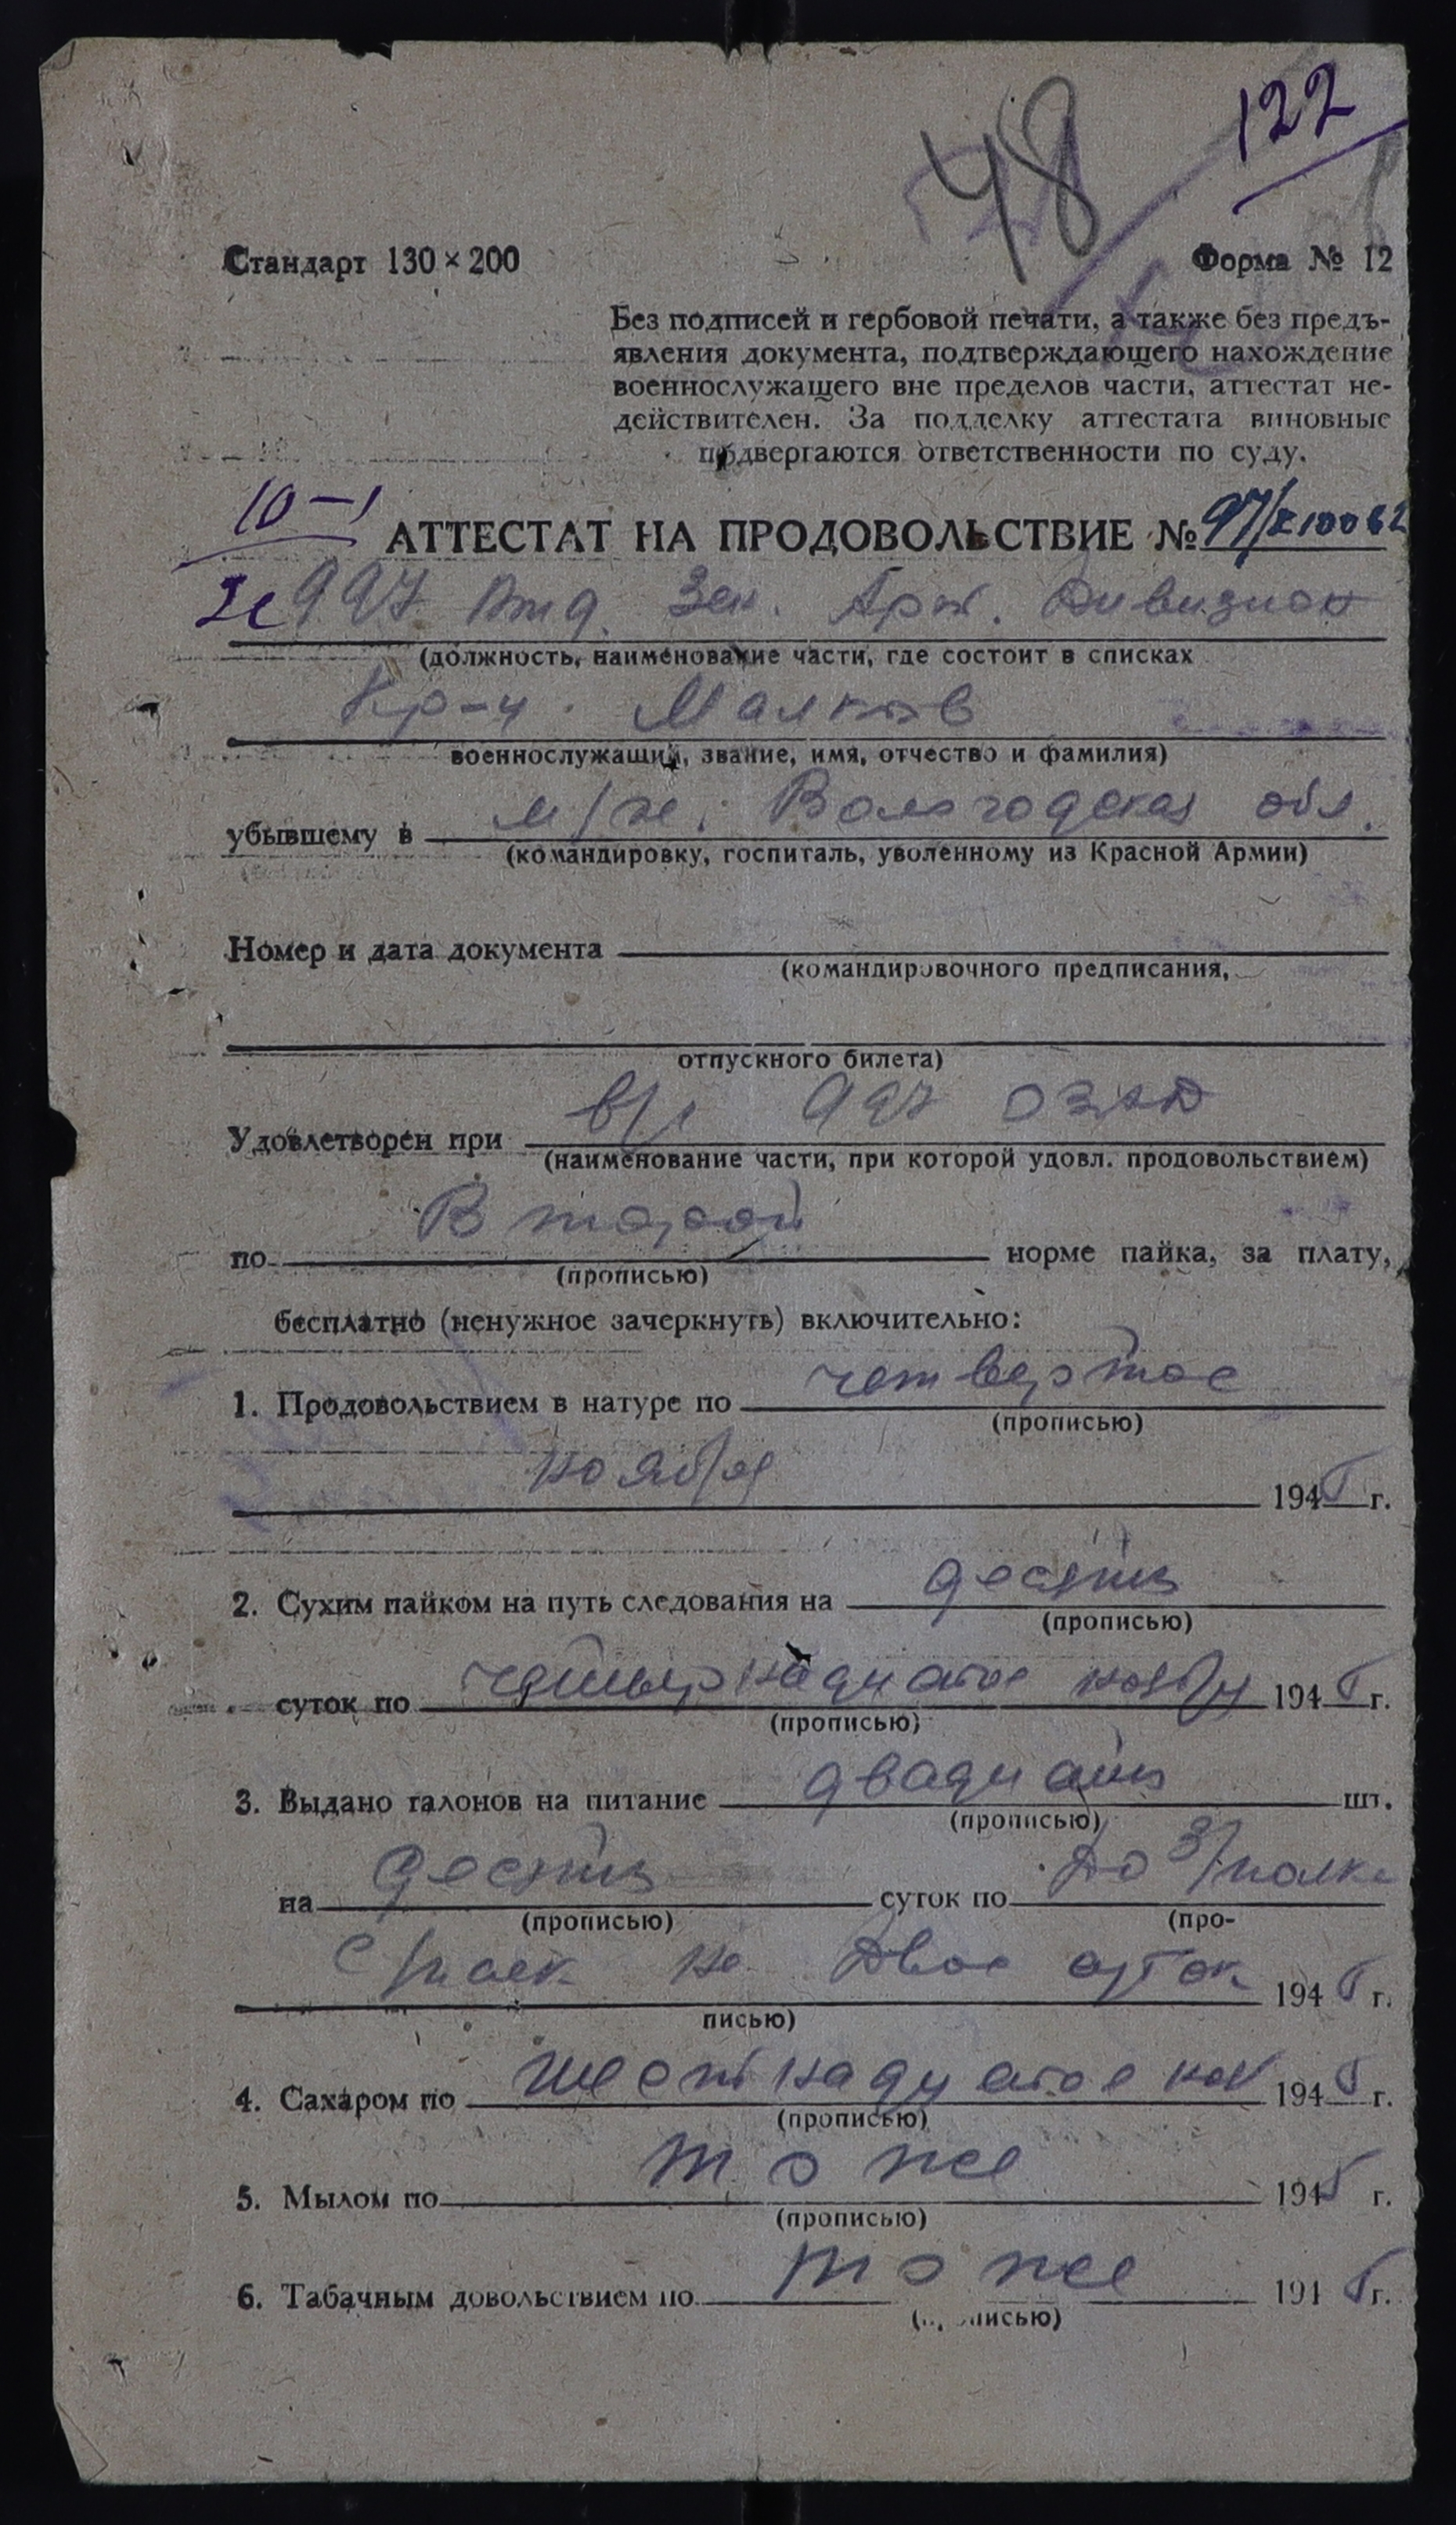 122
48
Стандарт 130×200
Форма № 12
Без подписей и гербовой печати, а также без предъ-
явления документа, подтверждающего нахождение
военнослужащего вне пределов части, аттестат не-
действителен. За подделку аттестата виновные
подвергаются ответственности по суду.
10-1
АТТЕСТАТ НА ПРОДОВОЛЬСТВИЕ №
997 Отд. Зен. Арт. Дивизион
(должность, наименование части, где состоит в списках
Кр-ц. Малков
военнослужащий, звание, имя, отчество и фамилия)
убывшему в м/ж. Вологодская обл.
(командировку, госпиталь, уволенному из Красной Армии)
Номер и дата документа
(командировочного предписания,
отпускного билета)
Удовлетворен при в/ч 997 ОЗАД
(наименование части, при которой удовл. продовольствием)
по Второй норме пайка, за плату,
(прописью)
бесплатно (ненужное зачеркнуть) включительно:
1. Продовольствием в натуре по четвертое
(прописью)
ноября 1945 г.
2. Сухим пайком на путь следования на десять
(прописью)
суток по четырнадцатое ноября 1945 г.
(прописью)
3. Выдано талонов на питание двадцать шт.
(прописью)
на десять суток по
(прописью) (про-
на двое суток 1945 г.
писью)
4. Сахаром по шестнадцатое ноя 1945 г.
(прописью)
5. Мылом по то же 1945 г.
(прописью)
6. Табачным довольствием по то же 1945 г.
(прописью)